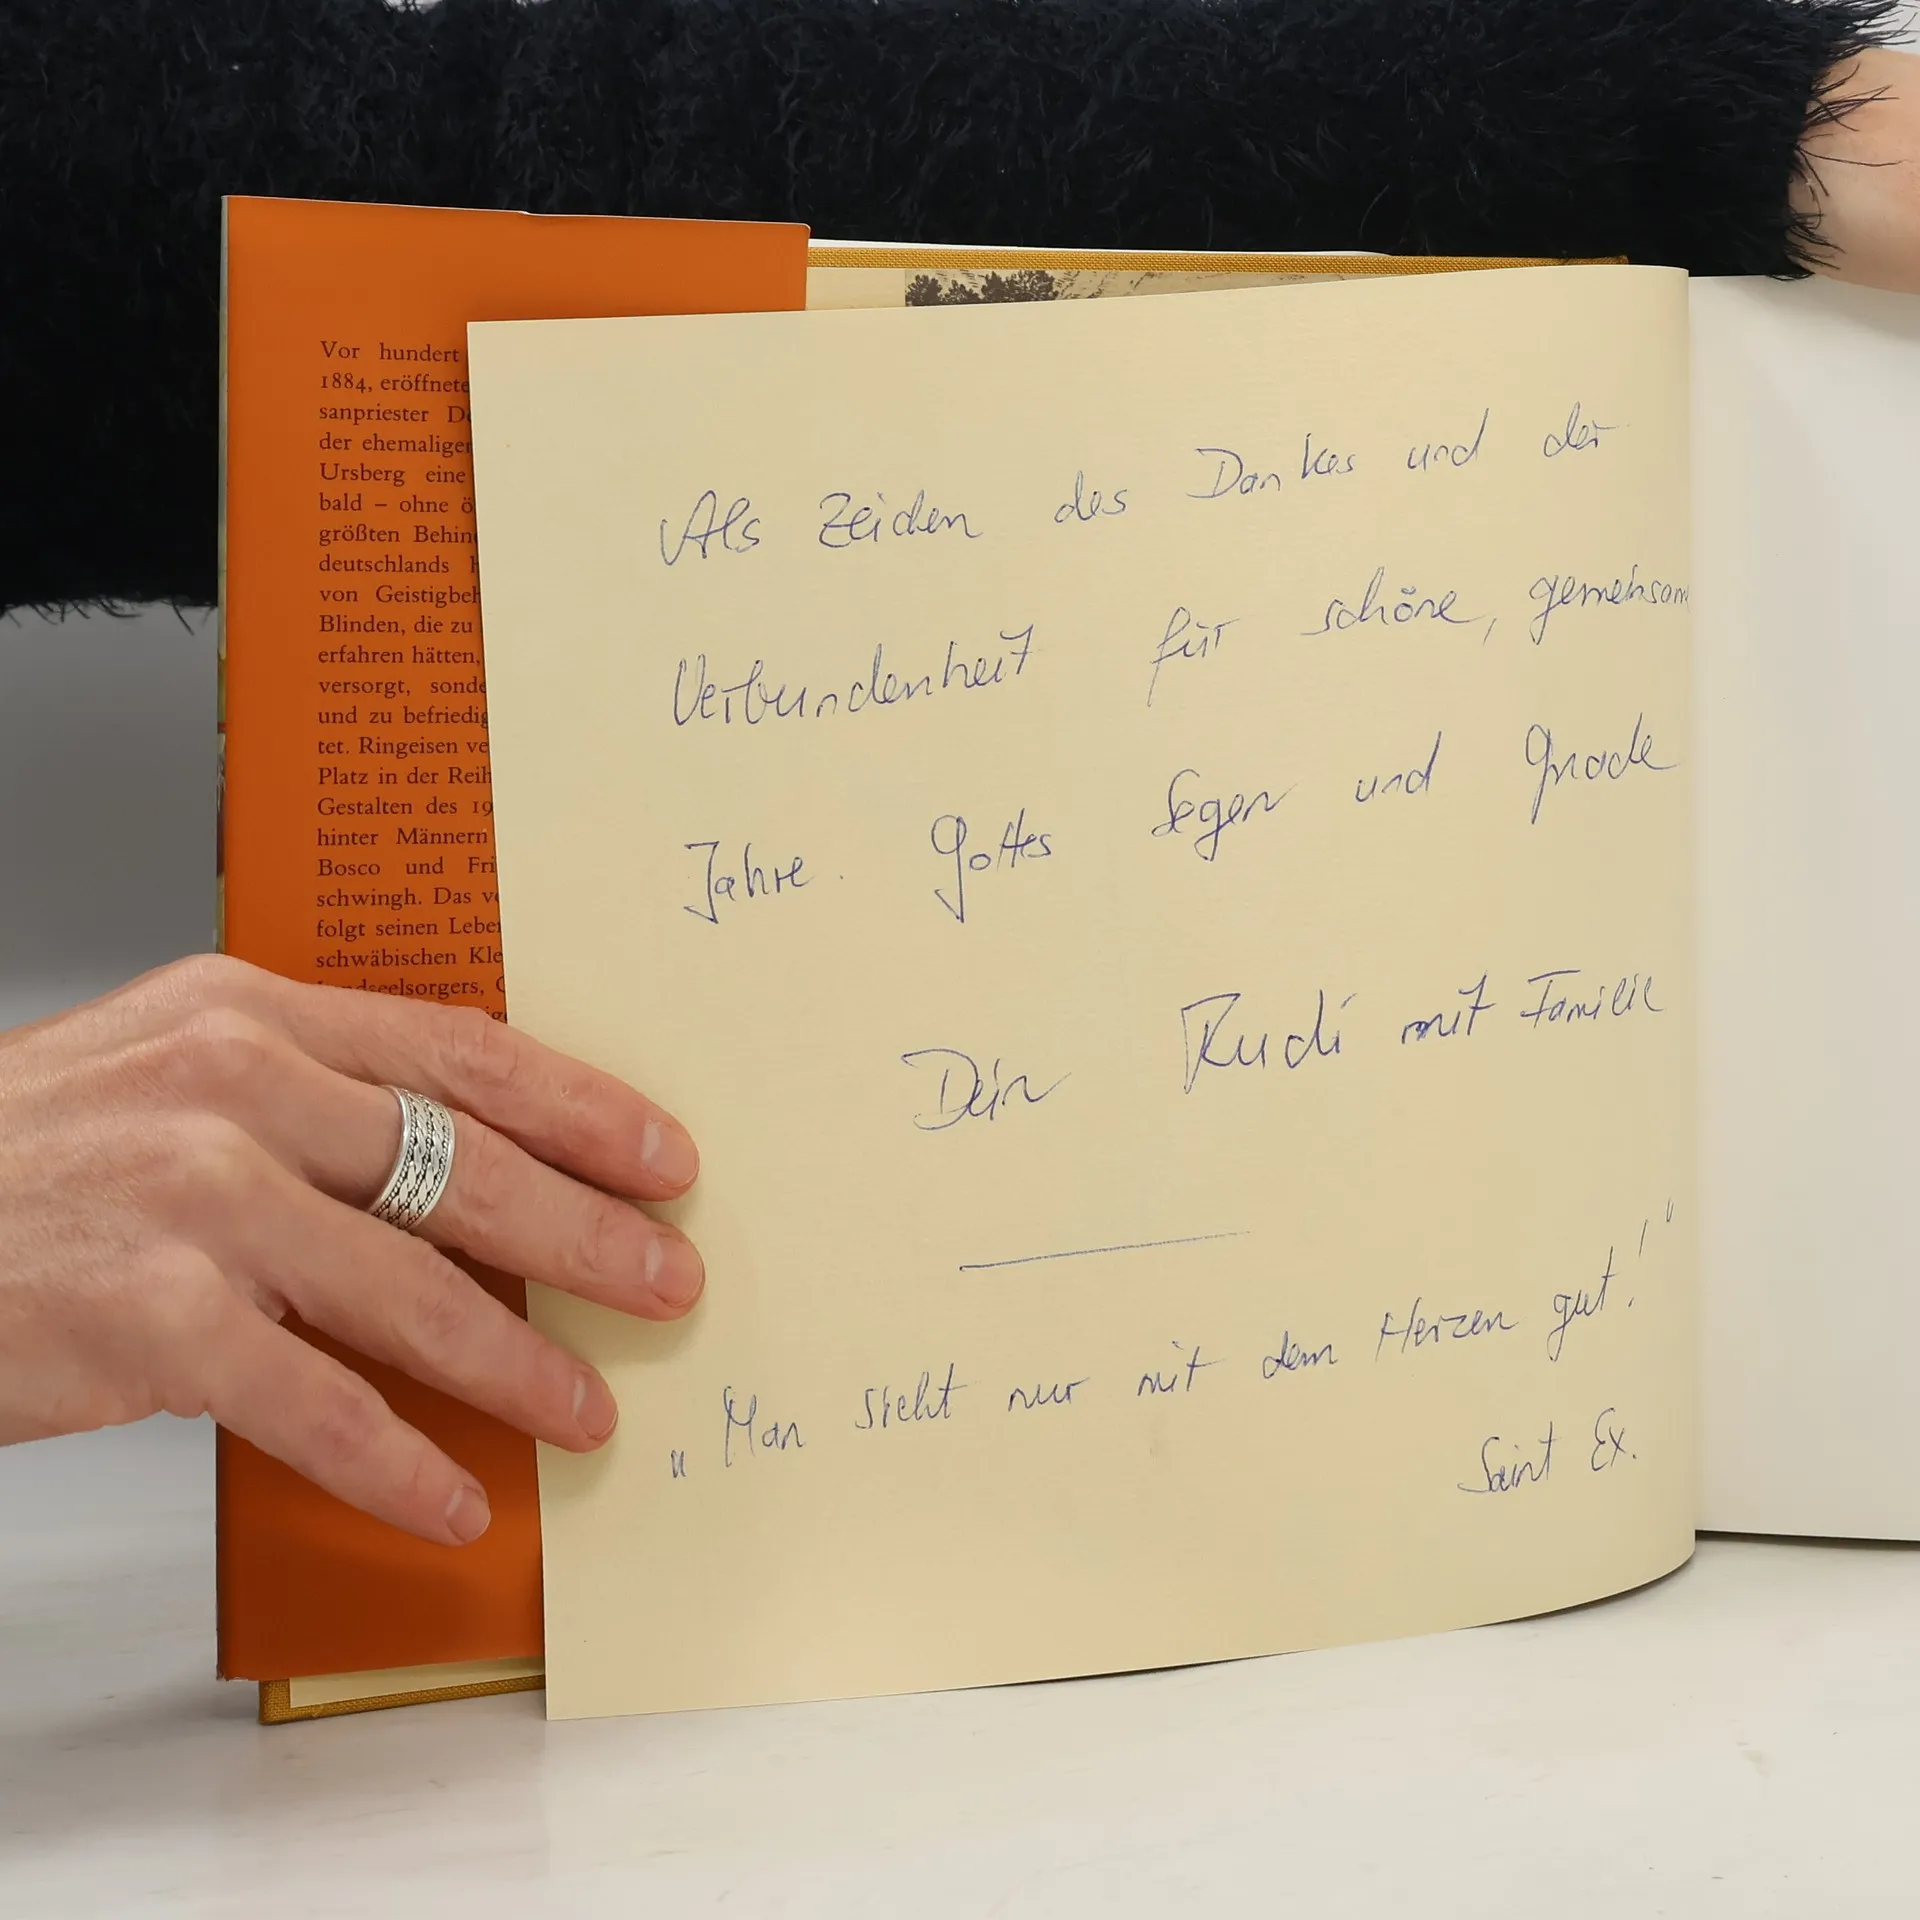 Vor hundert
1884, eröffnete
sanpriester
der ehemaligen
Ursberg eine
bald – ohne
größten
deutschlands
von
Blinden, die zu
erfahren hätten,
versorgt,
und zu
tet. Ringeisen
Platz in der
Gestalten des
hinter Männern
Bosco und
schwingh. Das
folgt seinen
schwäbischen
Als Zeichen des Dankes und der
Verbundenheit für schöne, gemeinsam
Jahre. Gottes Segen und Gnade
Dein Rudi mit Familie
„Man sieht nur mit dem Herzen gut!"
Saint Ex.